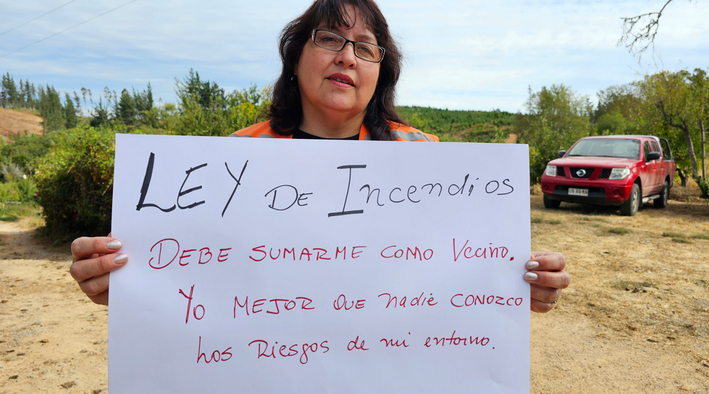 LEY DE Incendios
DEBE SUMARME COMO Vecino.
Yo MEJOR QUE nadie CONOZCO
Los Riesgos de mi entorno.